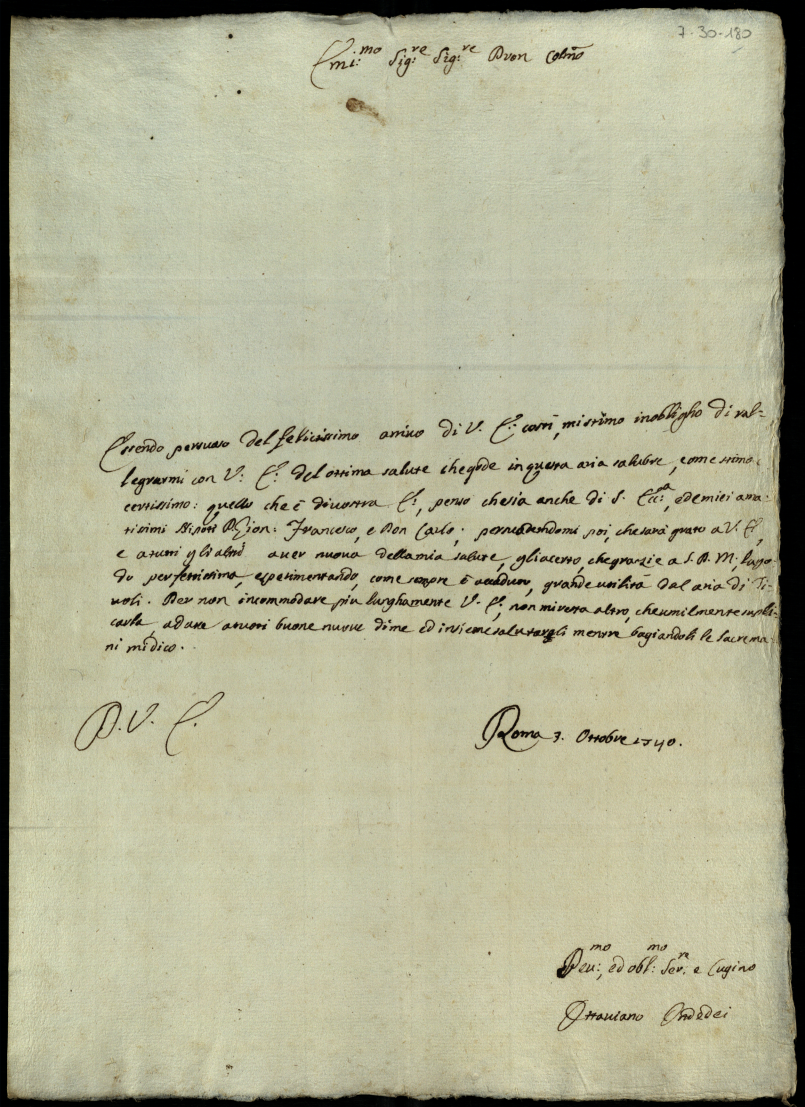 7-30-180
Emi:mo Sig:re Sig:re Pron Colmo
Essendo persuaso del felicissimo arrivo di V. E: costi, mi stimo in obbligho di ral=
legrarmi con V: E: del ottima salute che gode in questa aria salubre, come stimo
certissimo: quello che è di vostra E:, penso che sia anche di S. Ecc:za, ed e miei ama=
tisimi Nipoti Francesco, e Don Carlo; persuadendomi poi, che sarà grato a V. E:,
e a tutti gli altri aver nuova della mia salute, gli acerto, che grazie a S. D. M:, la go=
do perfettissima, esperimentando, come sempre è, grande utilità dal aria di Ti=
voli. Per non incommodare piu lunghamente V. E:, non mi resta altro, che umilmente supli=
carla, a dare a tutti buone nuove di me ed insieme salutargli mentre bagiandoli le sacre ma=
ni mi dico.
D. V. E.
Roma 3. Ottobre 1740.
Deu:mo, ed obl:mo Ser:re e Cugino
Ottaviano Ondedei